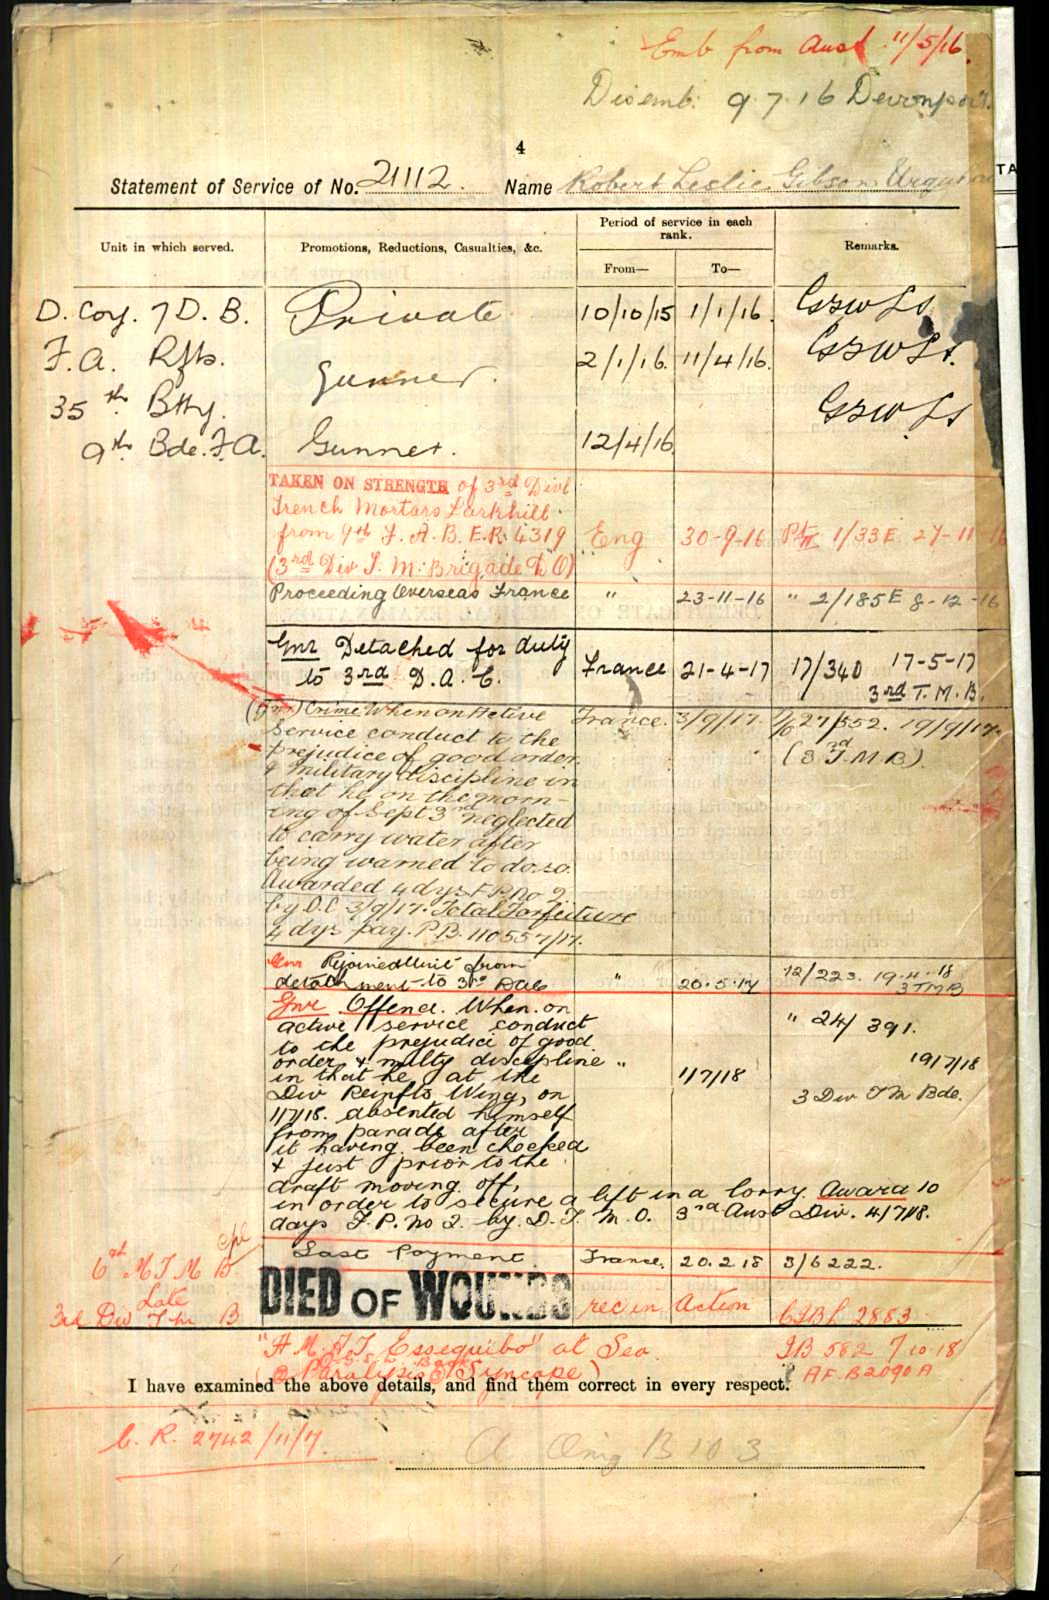 Emb from Aust 11/5/16
Disemb. 9.7.16 Devonport.
4
Statement of Service of No. 21112. Name Robert Leslie Gibson Urquhart
Unit in which served. Promotions, Reductions, Casualties, &c. Period of service in each rank. Remarks.
From— To—
D. Coy. 7 D. B. Private 10/10/15 1/1/16.
F. A. Rfts. Gunner. 2/1/16. 11/4/16.
35th Btty.
9th Bde. F.A. Gunner. 12/4/16.
TAKEN ON STRENGTH of 3rd Divl
Trench Mortars Larkhill
from 9th F. A. B. E.R. 4319 Eng 30-9-16 Pt II 1/33E 27-11-16
(3rd Div T. M. Brigade D O)
Proceeding Overseas France " 23-11-16 " 2/185E 8-12-16
Gnr Detached for duty
to 3rd D. A. C. France 21-4-17 17/340 17-5-17
3rd T. M. B.
(Gnr) Crime When on Active France. 3/9/17. 27/552. 19/9/17.
Service conduct to the
prejudice of good order (3rd T M B).
& Military discipline in
that he on the morn-
ing of Sept 3rd neglected
to carry water after
being warned to do so.
Awarded 4 dys F.P. No 2
by O.C 3/9/17. Total Forfeiture
4 dys' pay. P.B. 110557/17.
Gnr Rejoined Unit from
detachment to 3rd DAC " 20.5.17 12/223. 19.4.18
3 TMB
Gnr Offence. When on
active service conduct " 24/391.
to the prejudice of good
order & milty discipline " 19/7/18
in that he at the 1/7/18
Div Reinfts Wing, on 3 Div T M Bde.
1/7/18. absented himself
from parade after
it having been checked
& just prior to the
draft moving off,
in order to secure a lift in a lorry. Award 10
days F. P. No 2. by D. T. M. O. 3rd Aust Div. 4/7/18.
Last Payment. France. 20.2.18 3/6222.
6th M T M B
Late
3rd Div B DIED OF WOUNDS rec in Action 2883
"H. M. A. T. Essequibo" at Sea. 582 7.10.18
Paralysis & Syncope) AF. B2090A
I have examined the above details, and find them correct in every respect.
C. R. 2742/11/7.
B 103